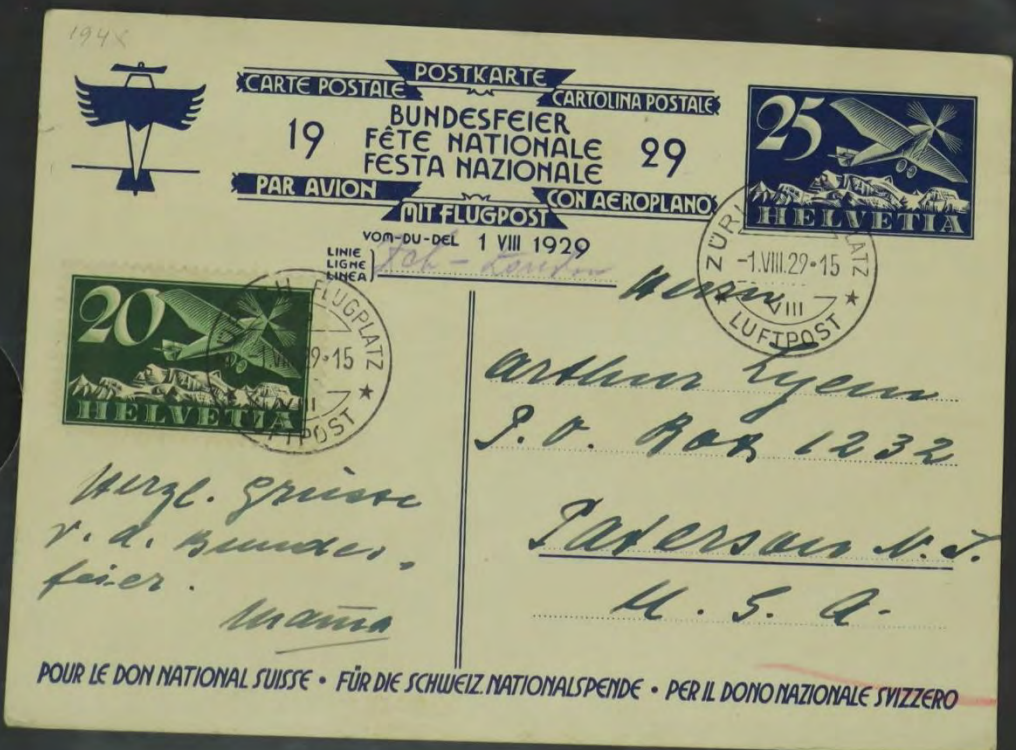 194x
POSTKARTE
CARTE POSTALE
CARTOLINA POSTALE
19 BUNDESFEIER 29
FÊTE NATIONALE
FESTA NAZIONALE
PAR AVION
CON AEROPLANO
MIT FLUGPOST
VOM-DU-DEL 1 VIII 1929
LINIE
LIGNE
LINEA
London
25
HELVETIA
ZÜRICH FLUGPLATZ
-1.VIII.29·15
VIII
LUFTPOST
20
HELVETIA
FLUGPLATZ
1.VIII.29·15
LUFTPOST
Herrn
Arthur
P. O. Box 1232
Paterson N. J.
U. S. A.
Herzl. Grüsse
v. d. Bundes-
feier.
Mama
POUR LE DON NATIONAL SUISSE • FÜR DIE SCHWEIZ. NATIONALSPENDE • PER IL DONO NAZIONALE SVIZZERO